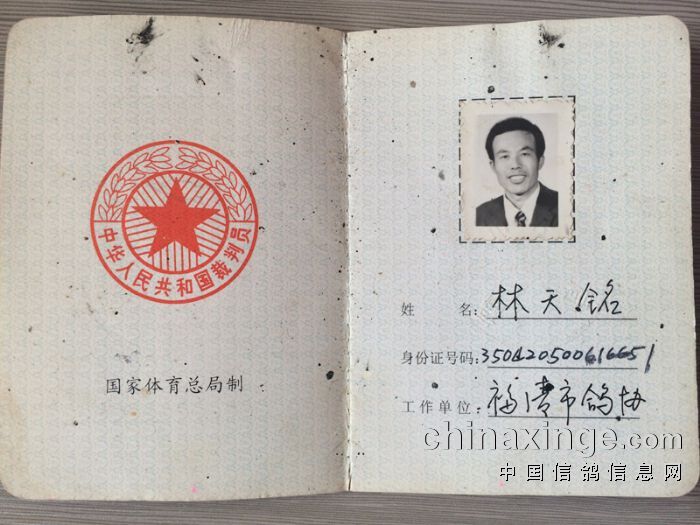 中华人民共和国裁判员
国家体育总局制
姓 名: 林天铭
身份证号码:
工作单位: 福清市鸽协
chinaxinge.com
中国信鸽信息网